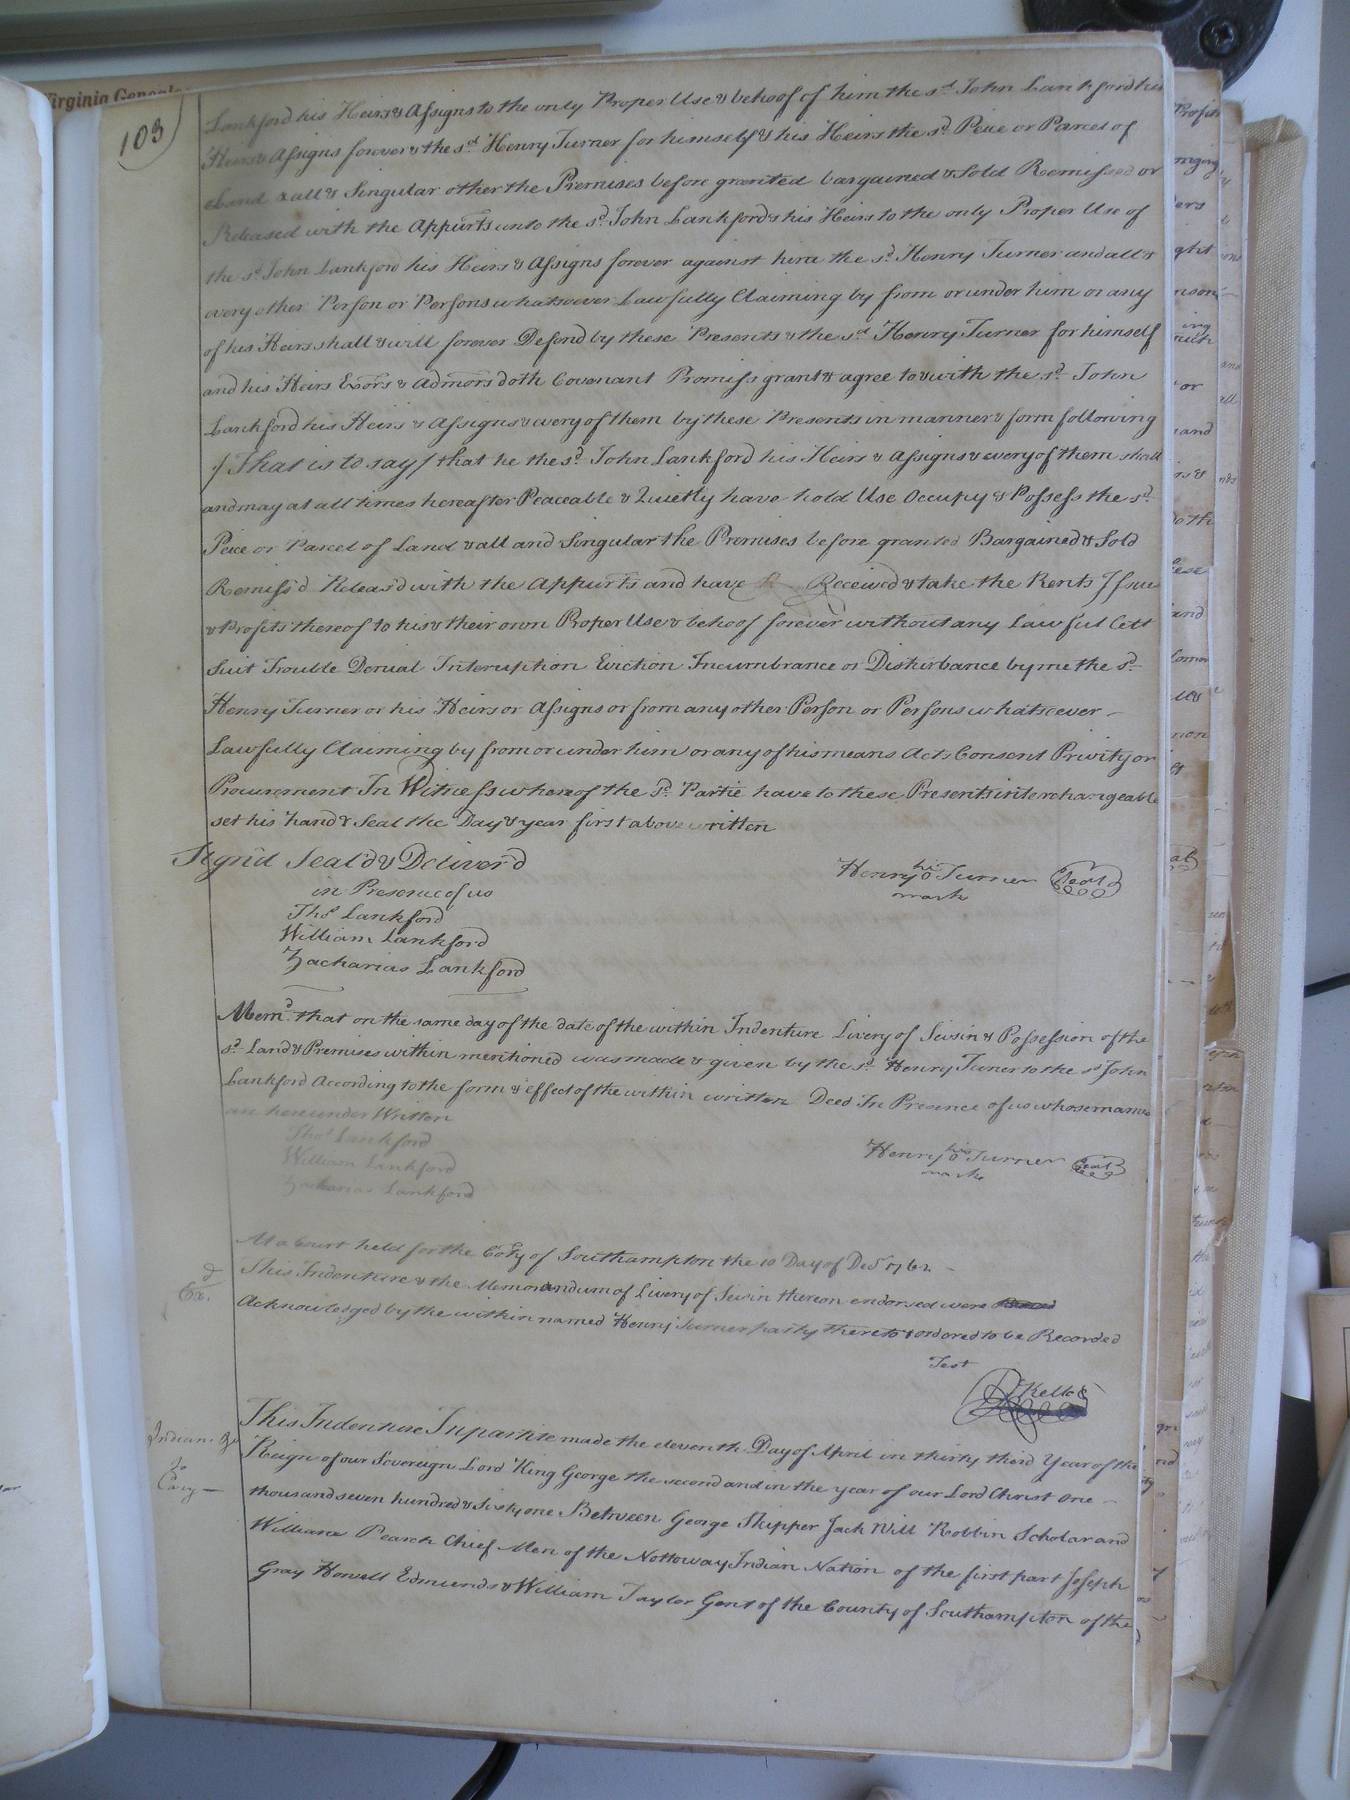 Virginia Genealo
103
Lankford his Heirs & Assigns to the only Proper Use & behoof of him the sd. John Lankford his
Heirs & Assigns forever & the sd. Henry Turner for himself & his Heirs the sd. Peice or Parcel of
Land & all & Singular other the Premises before granted bargained & Sold Remissed or
Released with the Appurts unto the sd. John Lankford & his Heirs to the only Proper Use of
the sd. John Lankford his Heirs & Assigns forever against him the sd. Henry Turner and all &
every other Person or Persons whatsoever Lawfully Claiming by from or under him or any
of his Heirs shall & will forever Defend by these Presents & the sd. Henry Turner for himself
and his Heirs Exors & Admors doth Covenant Promiss grant & agree to & with the sd. John
Lankford his Heirs & Assigns & every of them by these Presents in manner & form following
/ That is to say / that he the sd. John Lankford his Heirs & Assigns & every of them shall
and may at all times hereafter Peaceable & Quietly have hold Use Occupy & Possess the sd.
Peice or Parcel of Land & all and Singular the Premises before granted Bargained & Sold
Remiss'd Releas'd with the Appurts and have Received & take the Rents Issues
& Profits thereof to his & their own Proper Use & behoof forever without any Lawful Lett
Suit Trouble Denial Interuption Eviction Incumbrance or Disturbance by me the sd.
Henry Turner or his Heirs or Assigns or from any other Person or Persons whatsoever
Lawfully Claiming by from or under him or any of his means Acts Consent Privity or
Procurement In Witness whereof the sd. Partie have to these Presents interchangeable
set his hand & Seal the Day & year first above written
Sign'd Seal'd & Deliver'd
in Presence of us
Thos. Lankford
William Lankford
Zacharias Lankford
Henry his O Turner Seal
mark
Memd. that on the same day of the date of the within Indenture Livery of Seisin & Possession of the
sd. Land & Premises within mentioned was made & given by the sd. Henry Turner to the sd John
Lankford According to the form & effect of the within written Deed In Presence of us whose names
are hereunder Written
Thos. Lankford
William Lankford
Zacharias Lankford
Henry his O Turner Seal
mark
At a Court held for the Coty of Southampton the 10 Day of Decr 1762
This Indenture & the Memorandum of Livery of Seisin thereon endorsed were
Acknowledged by the within named Henry Turner party thereto & ordered to be Recorded
Exd.
Test
Rd. Kello C
Indians &c
to
Cary
This Indenture Tripartite made the eleventh Day of April in thirty third Year of the
Reign of our Sovereign Lord King George the second and in the year of our Lord Christ one
thousand seven hundred & Sixty one Between George Skipper Jack Will Robbin Scholar and
William Pearch Chief Men of the Nottoway Indian Nation of the first part Joseph
Gray Howell Edmunds & William Taylor Gent of the County of Southampton of the